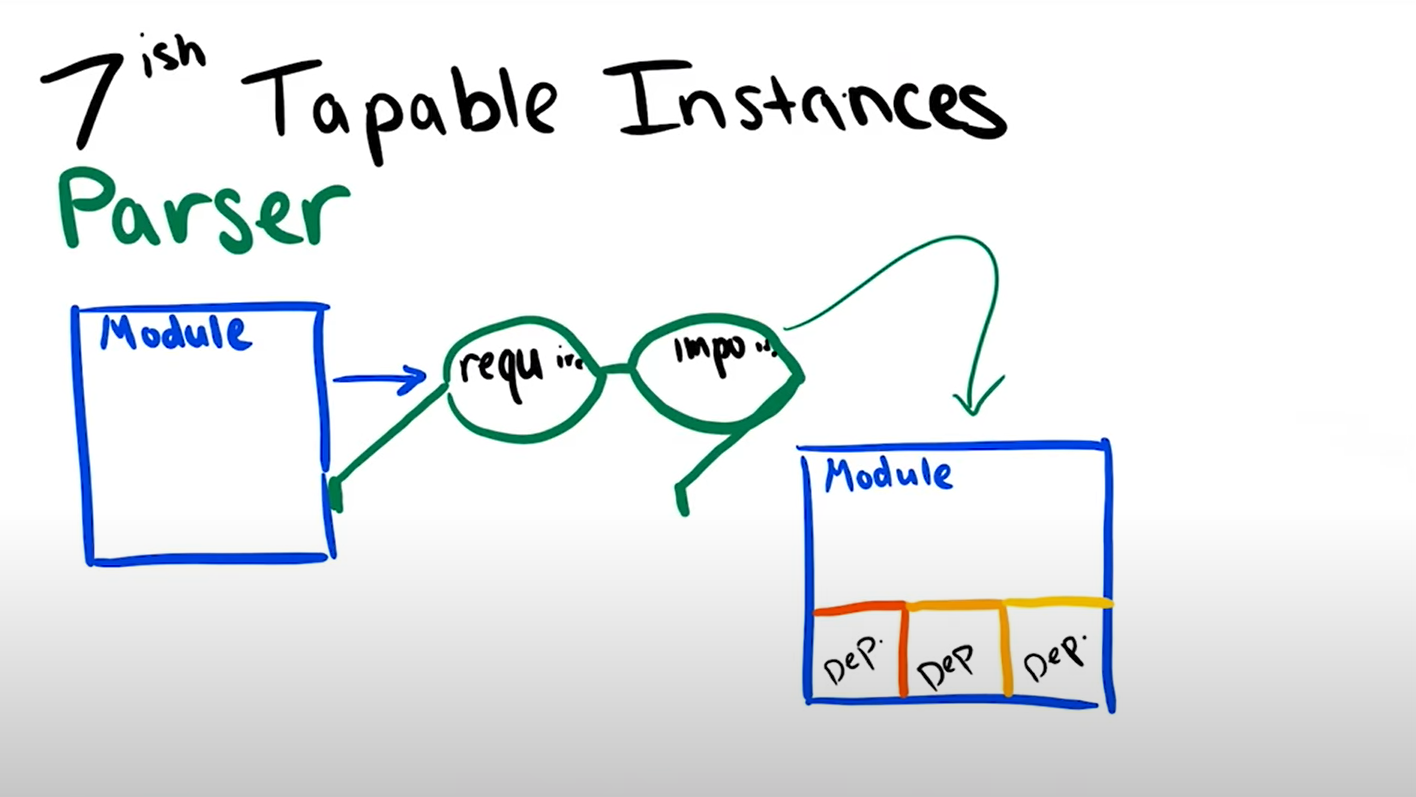 7ish Tapable Instances
Parser
Module
require
Module
Dep.
Dep
Dep.